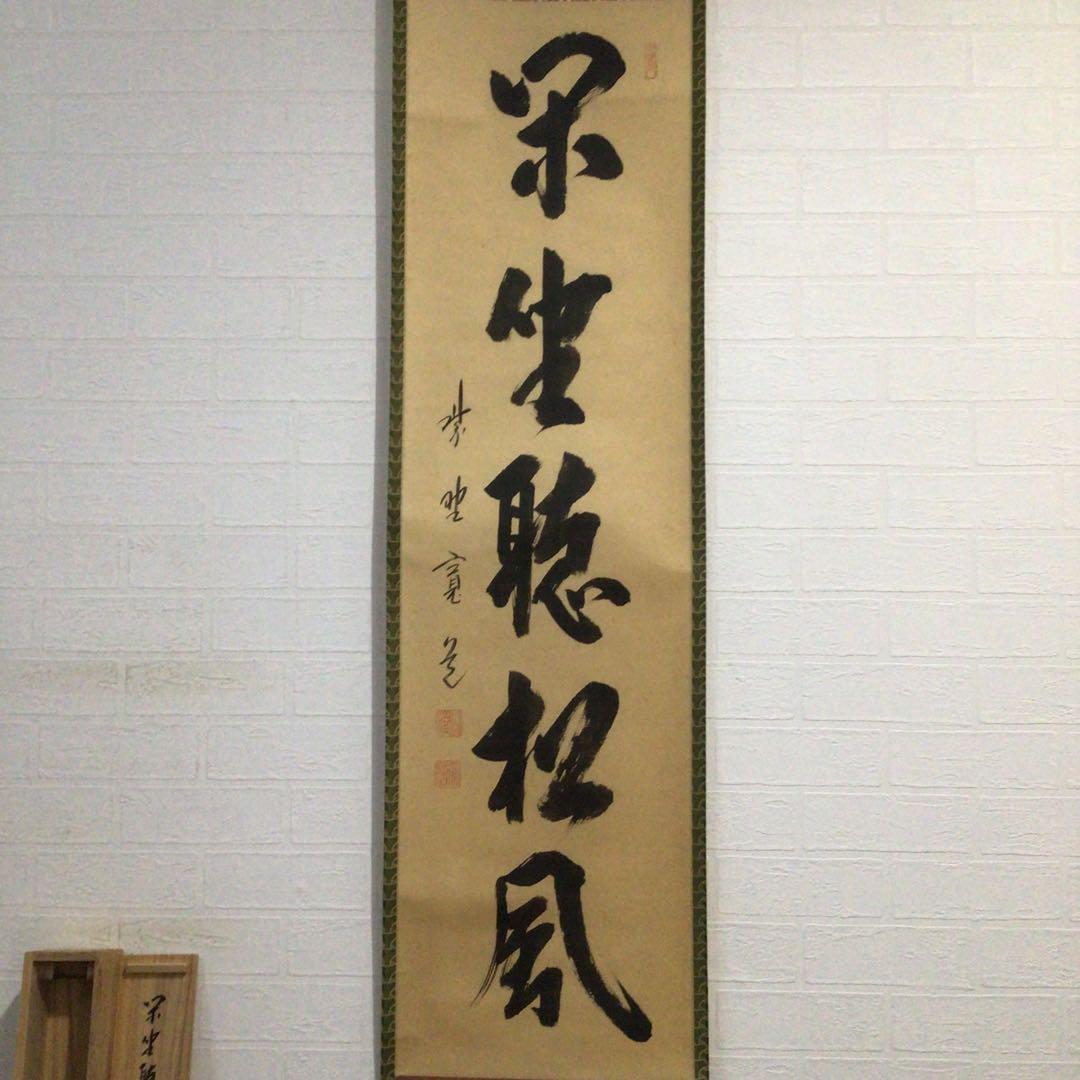 閑坐聴松風
紫野寛道
閑坐聴